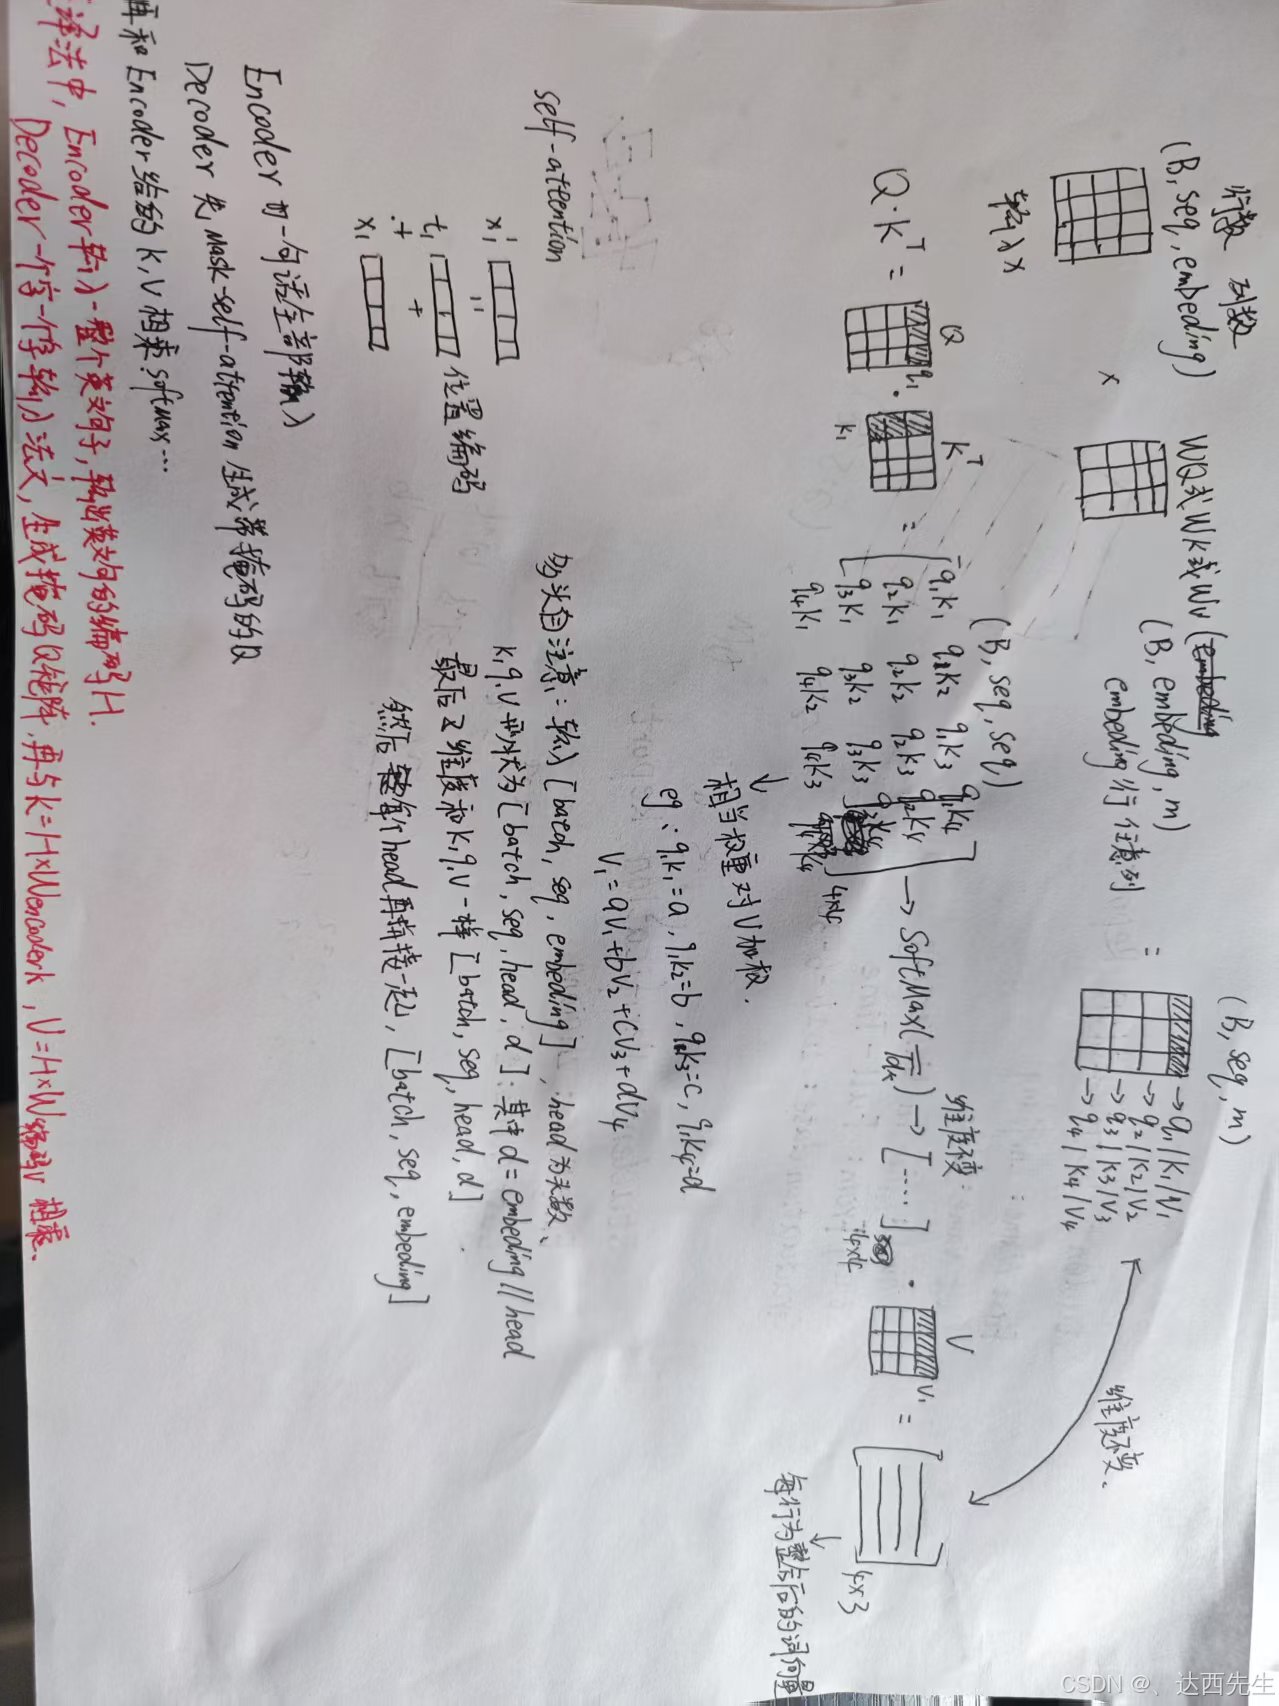 行数 列数
(B, seq, embeding)
输入X
×
WQ或WK或Wv
(B, embeding, m)
embeding行 任意列
=
(B, seq, m)
→q1/k1/v1
→q2/k2/v2
→q3/k3/v3
→q4/k4/v4
维度不变.
Q·K^T =
Q
q1
·
K^T
k1
=
(B, seq, seq)
q1k1 q1k2 q1k3 q1k4
q2k1 q2k2 q2k3 q2k4
q3k1 q3k2 q3k3
q4k1 q4k2 q4k3 q4k4
4x4
→ SoftMax( ) → [.....]
维度不变:
4x4
·
V
v1
=
4x3
↓
每行为整合后的词向量
↓
相当权重对V加权.
eg: q1k1=a, q1k2=b, q1k3=c, q1k4=d
V1=aV1+bV2+cV3+dV4
self-attention
x1'
=
t1 + 位置编码
x1
多头自注意: 输入[batch, seq, embeding], head为头数、
k,q,v 形状为[batch, seq, head, d]: 其中d=embeding//head
最后Z维度和k,q,v一样[batch, seq, head, d]
然后每个head再拼接一起, [batch, seq, embeding]
Encoder 为一句话全部输入
Decoder 先 Mask-self-attention 生成带掩码的Q
再和Encoder给的 K,V 相乘softmax...
译法中, Encoder输入一整个英文句子, 输出英文句的编码H.
Decoder一个字一个字输入法文, 生成掩码Q矩阵, 再与K=H×Wencoderk, V=H×W编码v 相乘、
CSDN @、达西先生